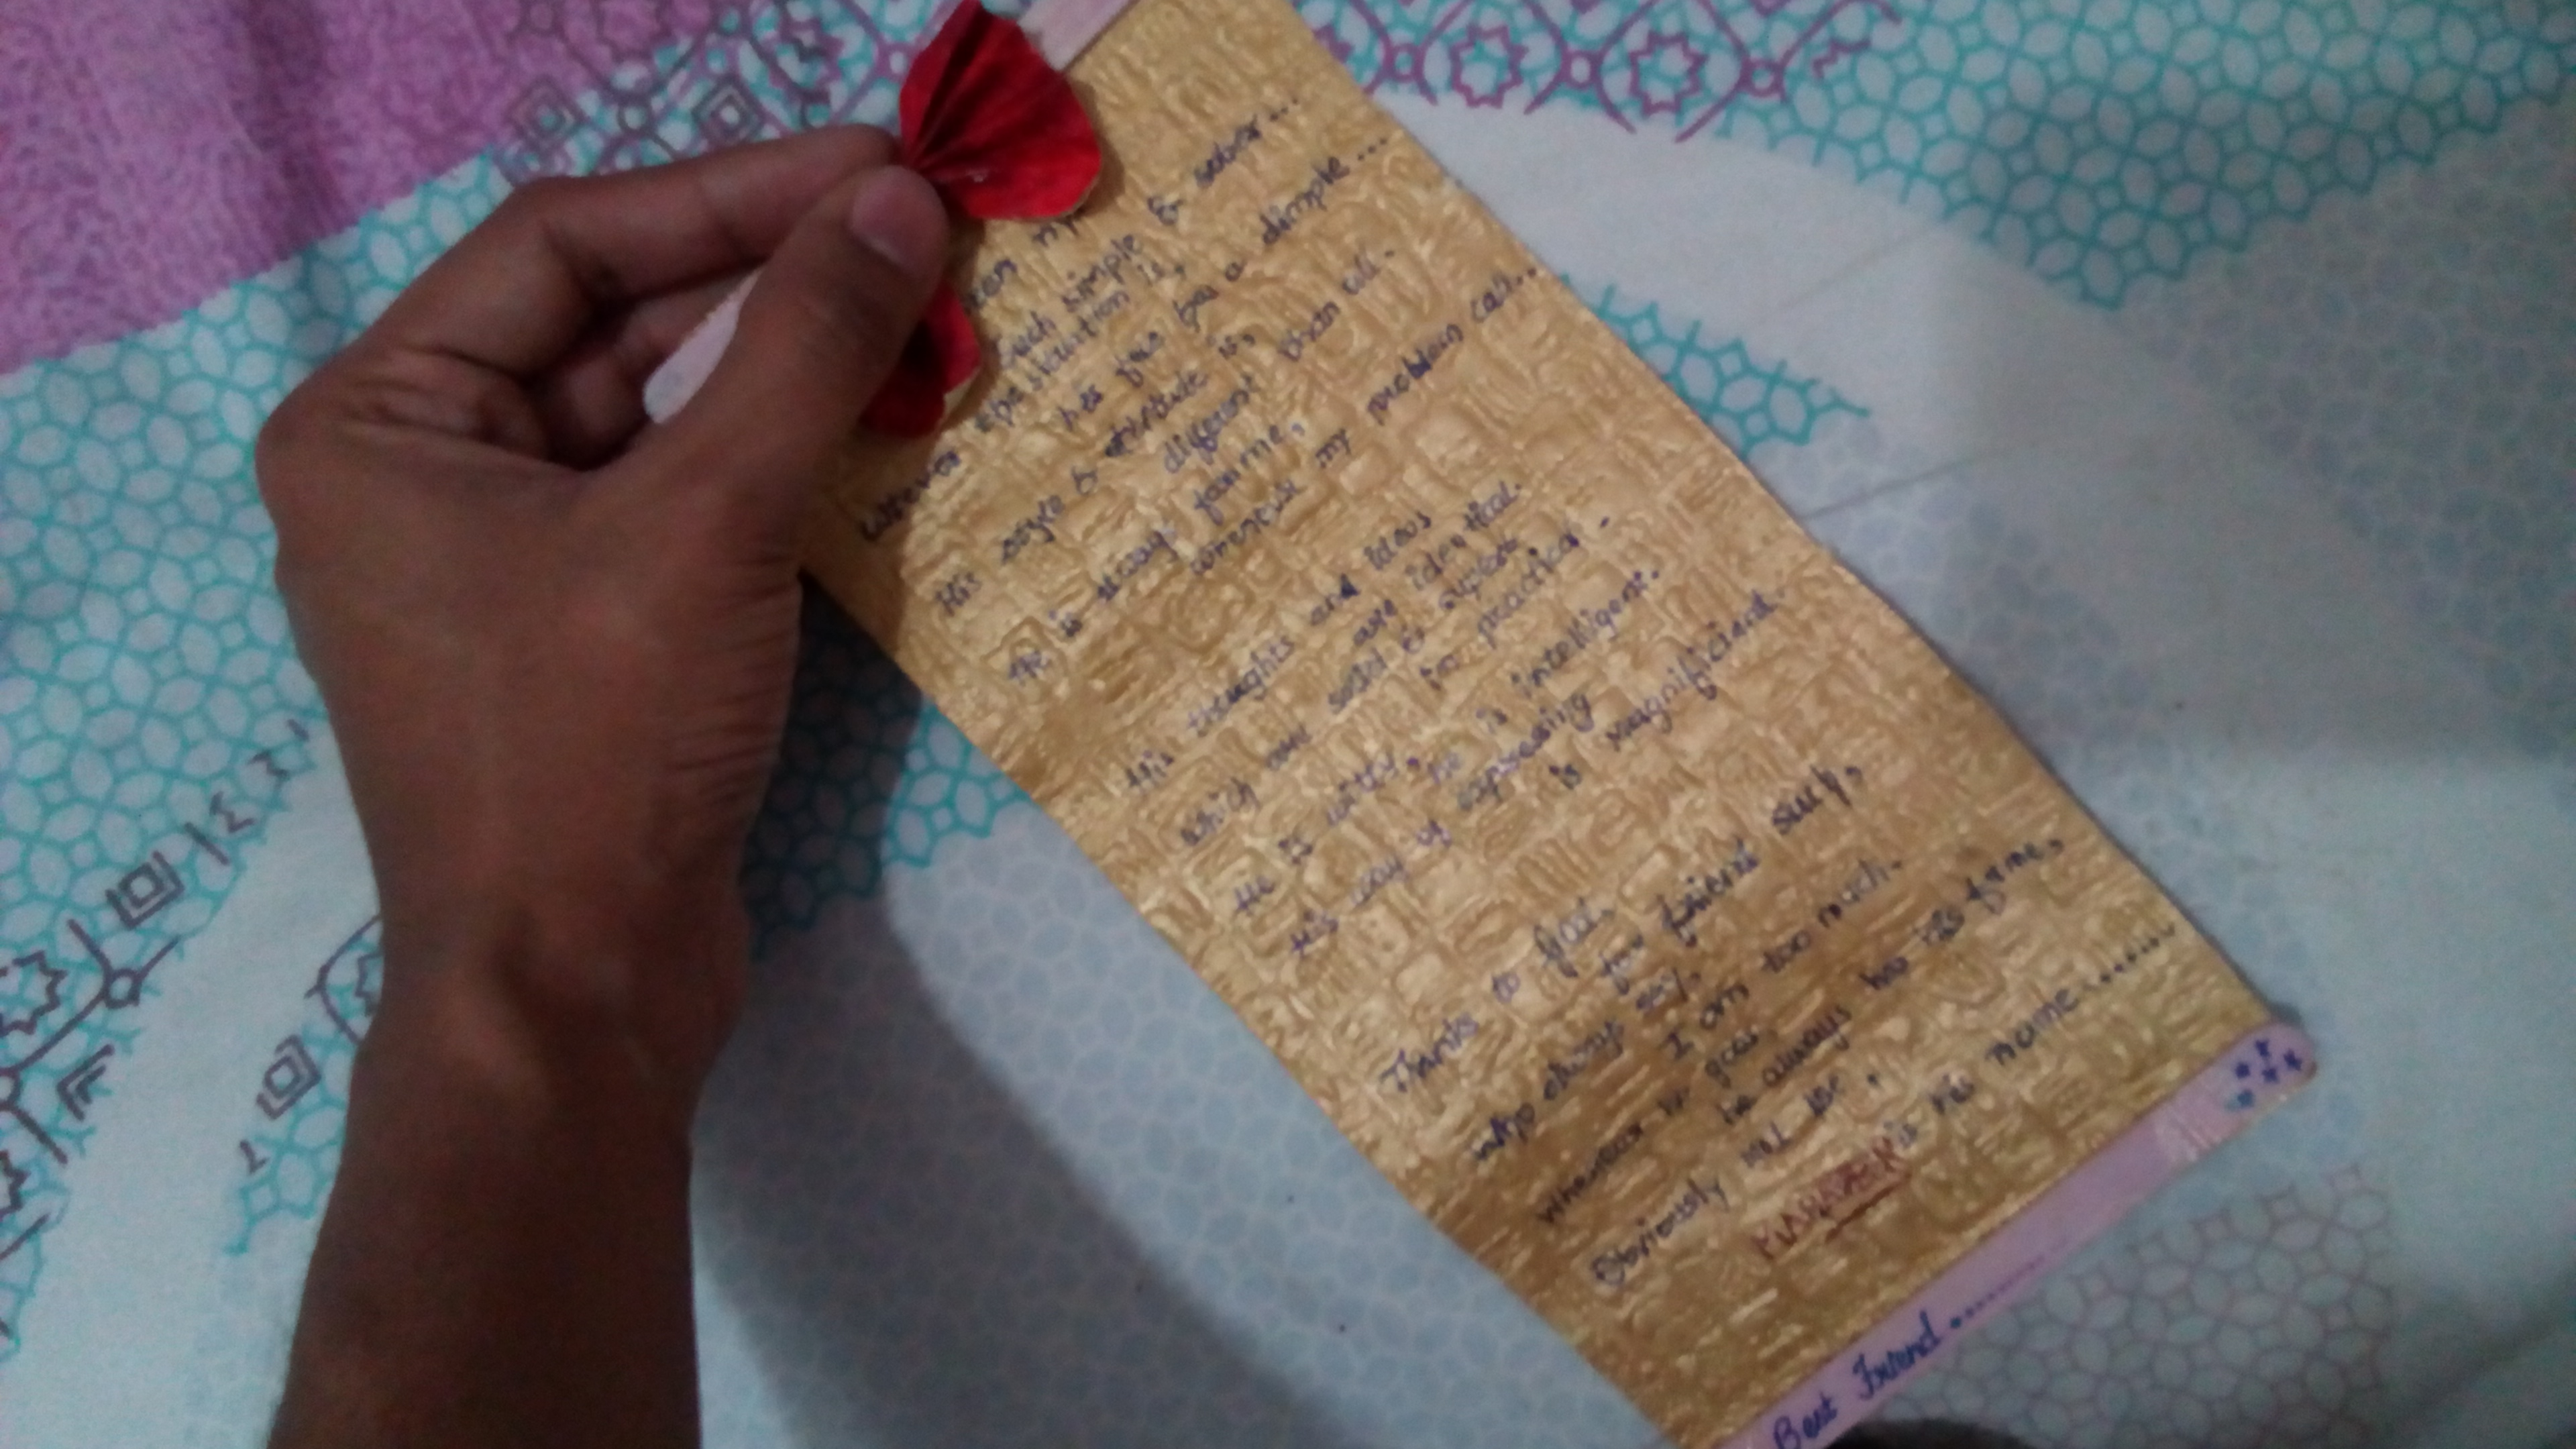 such simple & sober...
Whatever the situation is,
his face has a dimple...
His style & attitude is,
different than all.
He is always for me,
whenever my problem call...
His thoughts and ideas
are identical.
Which are solid &
too practical.
He is witty, he is intelligent.
His way of expressing
is magnificient.
Thanks to god,
for friend such,
who always say,
I am too much.
Whenever he goes
he always has his fame,
Obviously
is his name.......
Best Friend..........